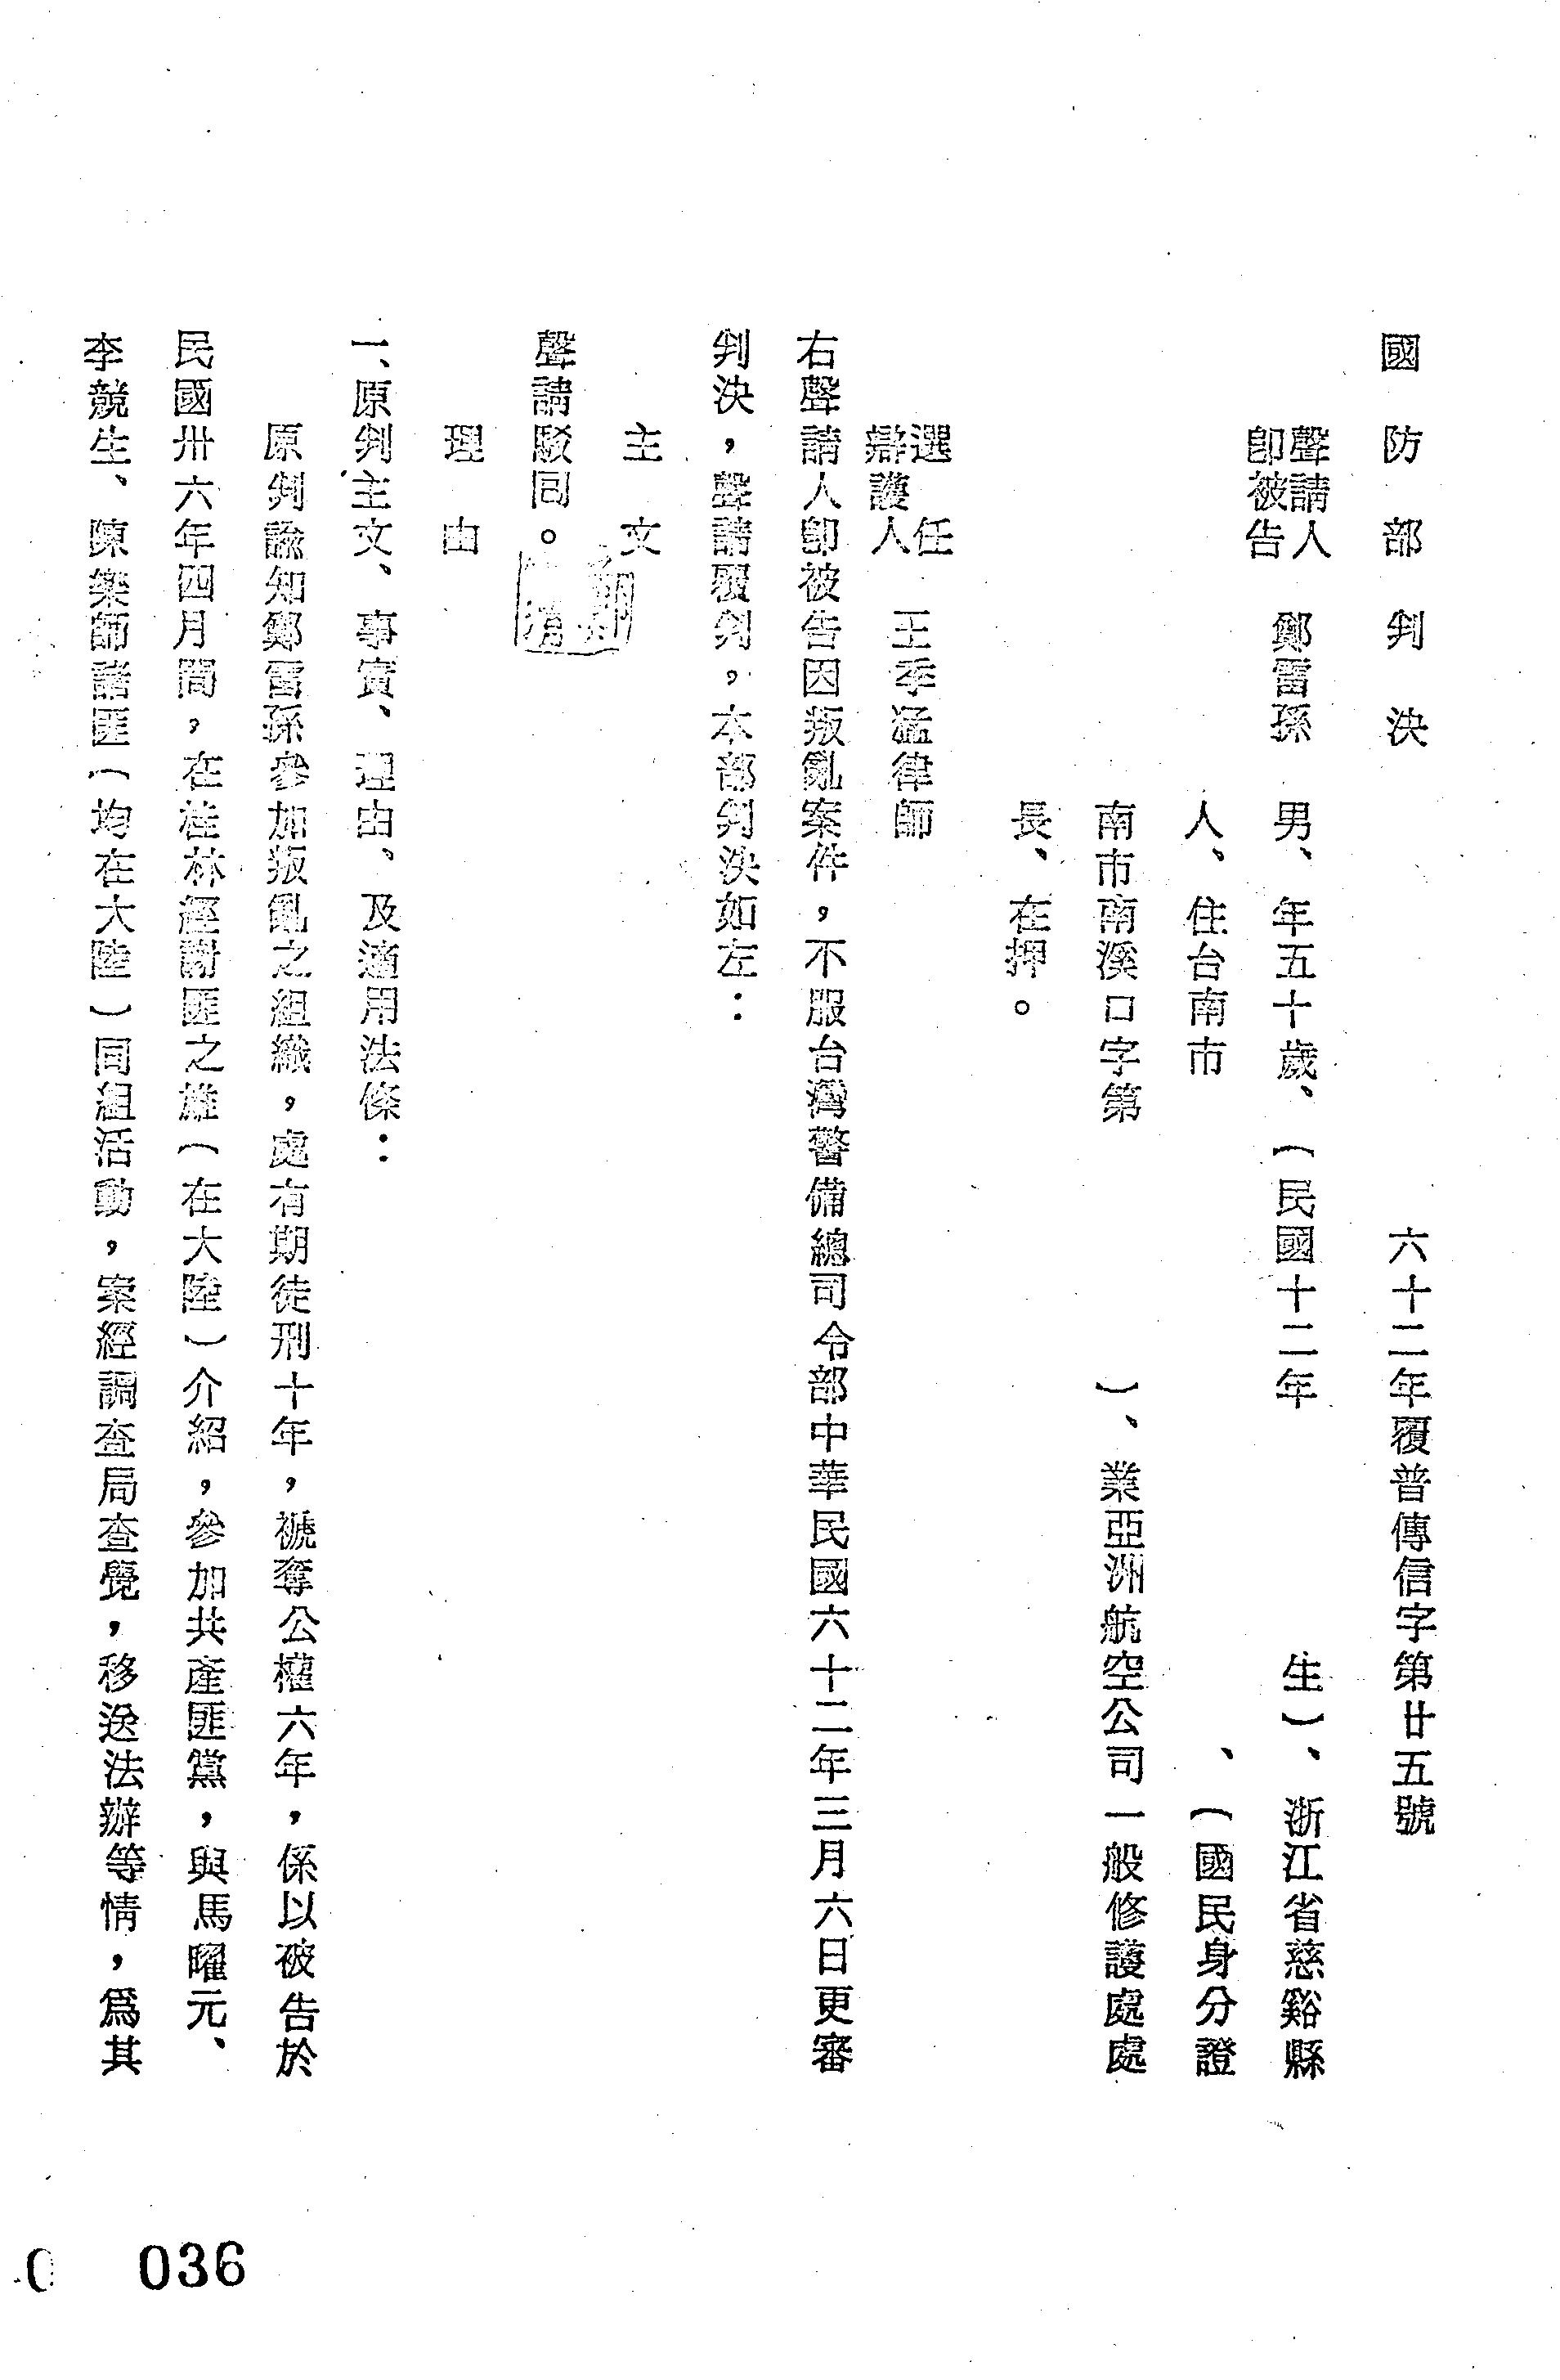 國防部判決 六十二年覆普傳信字第廿五號
聲請人
即被告 鄭雷孫 男、年五十歲、(民國十二年 生)、浙江省慈谿縣
人、住台南市 、(國民身分證
南市南溪口字第 )、業亞洲航空公司一般修護處處
長、在押。
選任
辯護人 王季猛律師
右聲請人即被告因叛亂案件,不服台灣警備總司令部中華民國六十二年三月六日更審
判決,聲請覆判,本部判決如左:
主文
聲請駁回。
理由
一、原判主文、事實、理由、及適用法條:
原判諭知鄭雷孫參加叛亂之組織,處有期徒刑十年,褫奪公權六年,係以被告於
民國卅六年四月間,在桂林經謝匪之雄(在大陸)介紹,參加共產匪黨,與馬曜元、
李競生、陳樂師諸匪(均在大陸)同組活動,案經調查局查覺,移送法辦等情,爲其
036